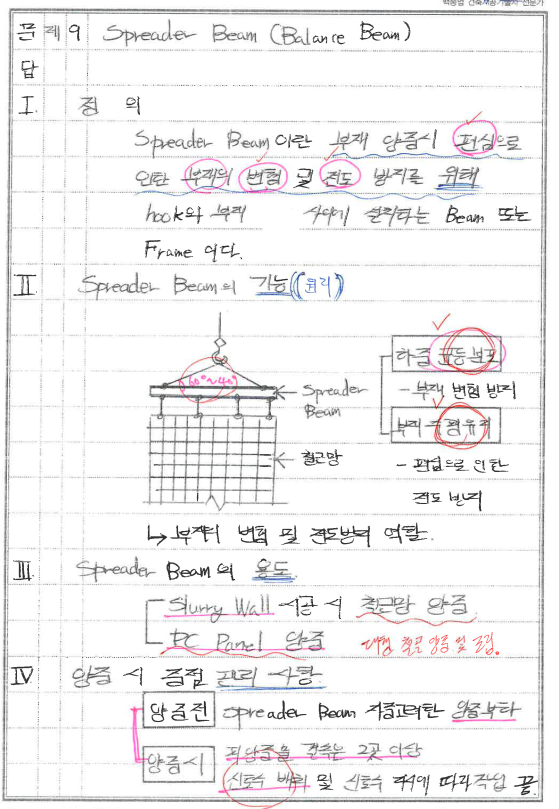 문제 9 Spreader Beam (Balance Beam)
답
I. 정 의
Spreader Beam이란 부재 양중시 편심으로
인한 부재의 변형 및 전도 방지를 위해
hook와 부재 사이에 설치하는 Beam 또는
Frame 이다.
II Spreader Beam의 기능(원리)
60°~40°
Spreader
Beam
철근망
하중 균등분포
- 부재 변형 방지
부재 수평유지
- 편심으로 인한
전도 방지
↳ 부재의 변형 및 전도방지 역할.
III. Spreader Beam의 용도
Slurry Wall 시공 시 철근망 양중
PC Panel 양중 대형 철골 양중 및 조립.
IV 양중 시 품질 관리 사항
양중전 Spreader Beam 자중고려한 양중부하
양중시 피양중물 결속은 2곳 이상
신호수 배치 및 신호수 지시에 따라작업 끝.